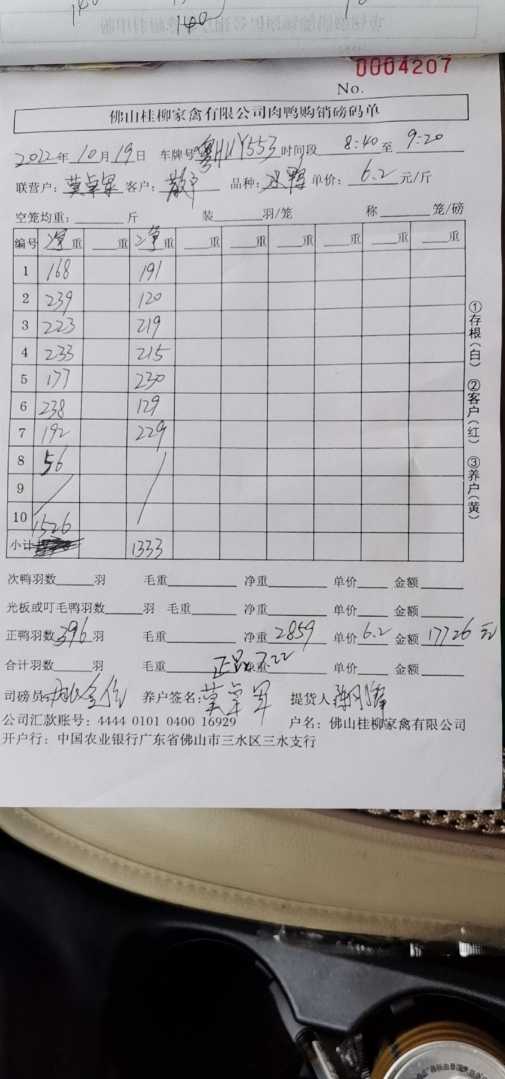 140
0004207
No.
佛山桂柳家禽有限公司肉鸭购销磅码单
2022年10月19日 车牌号粤HUY553时间段 8:40至9:20
联营户:莫卓军 客户:散户 品种:水鸭 单价:6.2元/斤
空笼均重: 斤 装 羽/笼 称 笼/磅
编号 净重 重 净重 重 重 重 重 重 重
1 168 191
2 239 120
3 223 219
4 233 215
5 177 230
6 238 129
7 192 229
8 56
9
10 1526
小计 1333
①存根(白) ②客户(红) ③养户(黄)
次鸭羽数 羽 毛重 净重 单价 金额
光板或叮毛鸭羽数 羽 毛重 净重 单价 金额
正鸭羽数396羽 毛重 净重2859 单价6.2 金额17726元
合计羽数 羽 毛重 正品7.22 净重 单价 金额
司磅员: 养户签名:莫卓军 提货人
公司汇款账号:4444 0101 0400 16929 户名:佛山桂柳家禽有限公司
开户行:中国农业银行广东省佛山市三水区三水支行